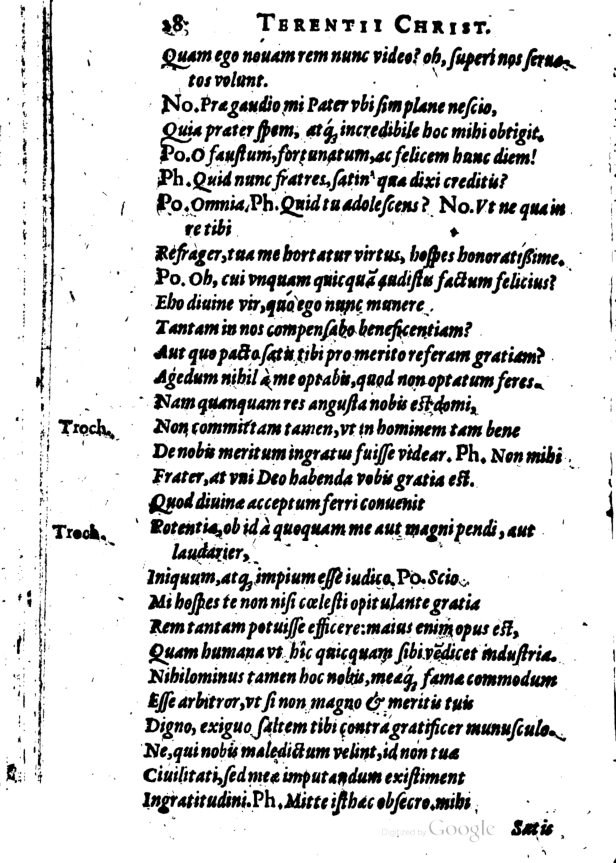 28 TERENTII CHRIST.
Quam ego nouam rem nunc video? oh, ſuperi nos ſerua-
tos volunt.
No. Præ gaudio mi Pater vbi ſim plane neſcio,
Quia præter ſpem, atq́; incredibile hoc mihi obtigit.
Po. O fauſtum, fortunatum, ac felicem hunc diem!
Ph. Quid nunc fratres, ſatin' quæ dixi creditis?
Po. Omnia, Ph. Quid tu adoleſcens? No. Vt ne qua in
re tibi
Refrager, tua me hortatur virtus, hoſpes honoratißime.
Po. Oh, cui vnquam quicquā audiſtis factum felicius?
Eho diuine vir, quo ego nunc munere
Tantam in nos compenſabo beneficentiam?
Aut quo pacto ſatis tibi pro merito referam gratiam?
Agedum nihil à me optabis, quod non optatum feres.
Nam quanquam res anguſta nobis eſt domi,
Troch. Non committam tamen, vt in hominem tam bene
De nobis meritum ingratus fuiſſe videar. Ph. Non mihi
Frater, at vni Deo habenda vobis gratia eſt.
Quod diuinæ acceptum ferri conuenit
Troch. Potentiæ, ob id à quoquam me aut magni pendi, aut
laudarier,
Iniquum, atq́; impium eſſe iudico. Po. Scio
Mi hoſpes te non niſi cœleſti opitulante gratia
Rem tantam potuiſſe efficere: maius enim opus eſt,
Quam humana vt hîc quicquam ſibi vēdicet induſtria.
Nihilominus tamen hoc nobis, meæq́; famæ commodum
Eſſe arbitror, vt ſi non magno & meritis tuis
Digno, exiguo ſaltem tibi contrà gratificer munuſculo.
Ne, qui nobis maledictum velint, id non tuæ
Ciuilitati, ſed meæ imputandum exiſtiment
Ingratitudini. Ph. Mitte iſthæc obſecro, mihi
Satis
Digitized by Google